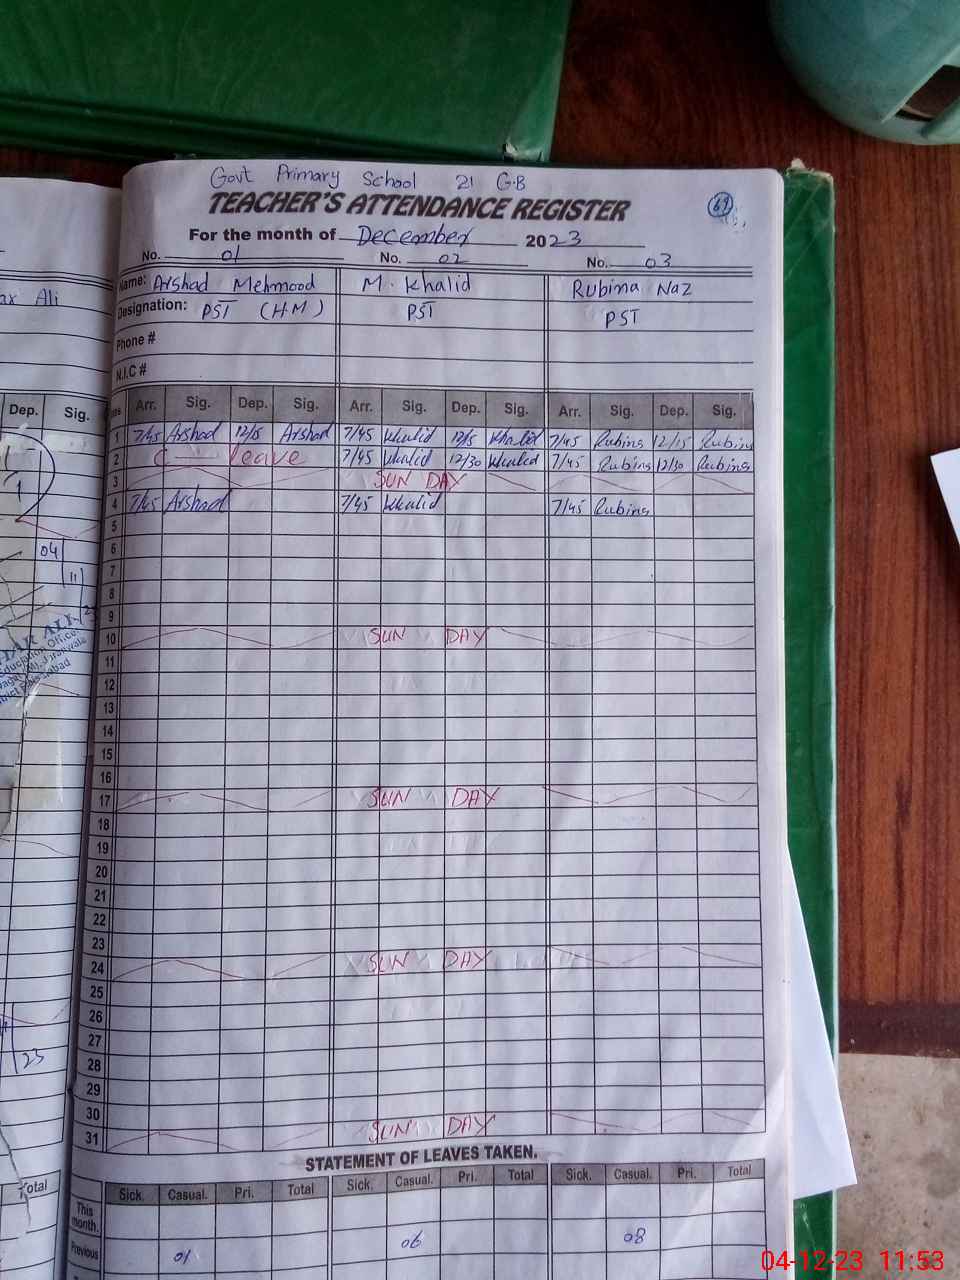 Govt Primary School 21 G.B
TEACHER'S ATTENDANCE REGISTER
69
For the month of December 2023
No. 01 No. 02 No. 03
Name: Arshad Mehmood M. Khalid Rubina Naz
Designation: PST (HM) PST PST
Phone #
N.I.C #
Arr. Sig. Dep. Sig. Arr. Sig. Dep. Sig. Arr. Sig. Dep. Sig.
1 7/45 Arshad 12/15 Arshad 7/45 Khalid 12/15 Khalid 7/45 Rubina 12/15 Rubina
2 C leave 7/45 Khalid 12/30 Khalid 7/45 Rubina 12/30 Rubina
3 SUN DAY
4 7/45 Arshad 7/45 Khalid 7/45 Rubina
5
6
7
8
9
10 SUN DAY
11
12
13
14
15
16
17 SUN DAY
18
19
20
21
22
23
24 SUN DAY
25
26
27
28
29
30
31 SUN DAY
STATEMENT OF LEAVES TAKEN.
Sick. Casual. Pri. Total Sick. Casual. Pri. Total Sick. Casual. Pri. Total
This month.
Previous 01 06 08
Ali
Dep. Sig.
04
11
23
Total
04-12-23 11:53